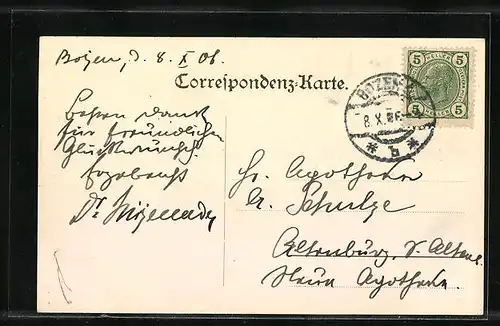 Bozen, d. 8. X 06.
Correspondenz-Karte.
5 HELLER 5
5 5
BOZEN
8.X.06
* 4 *
Besten Dank
für freundlichen
Glückwunsch.
Ergebenst
Dr
Hr. Apotheker
Schulze
Altenburg, S. Altenb.
Neue Apotheke.